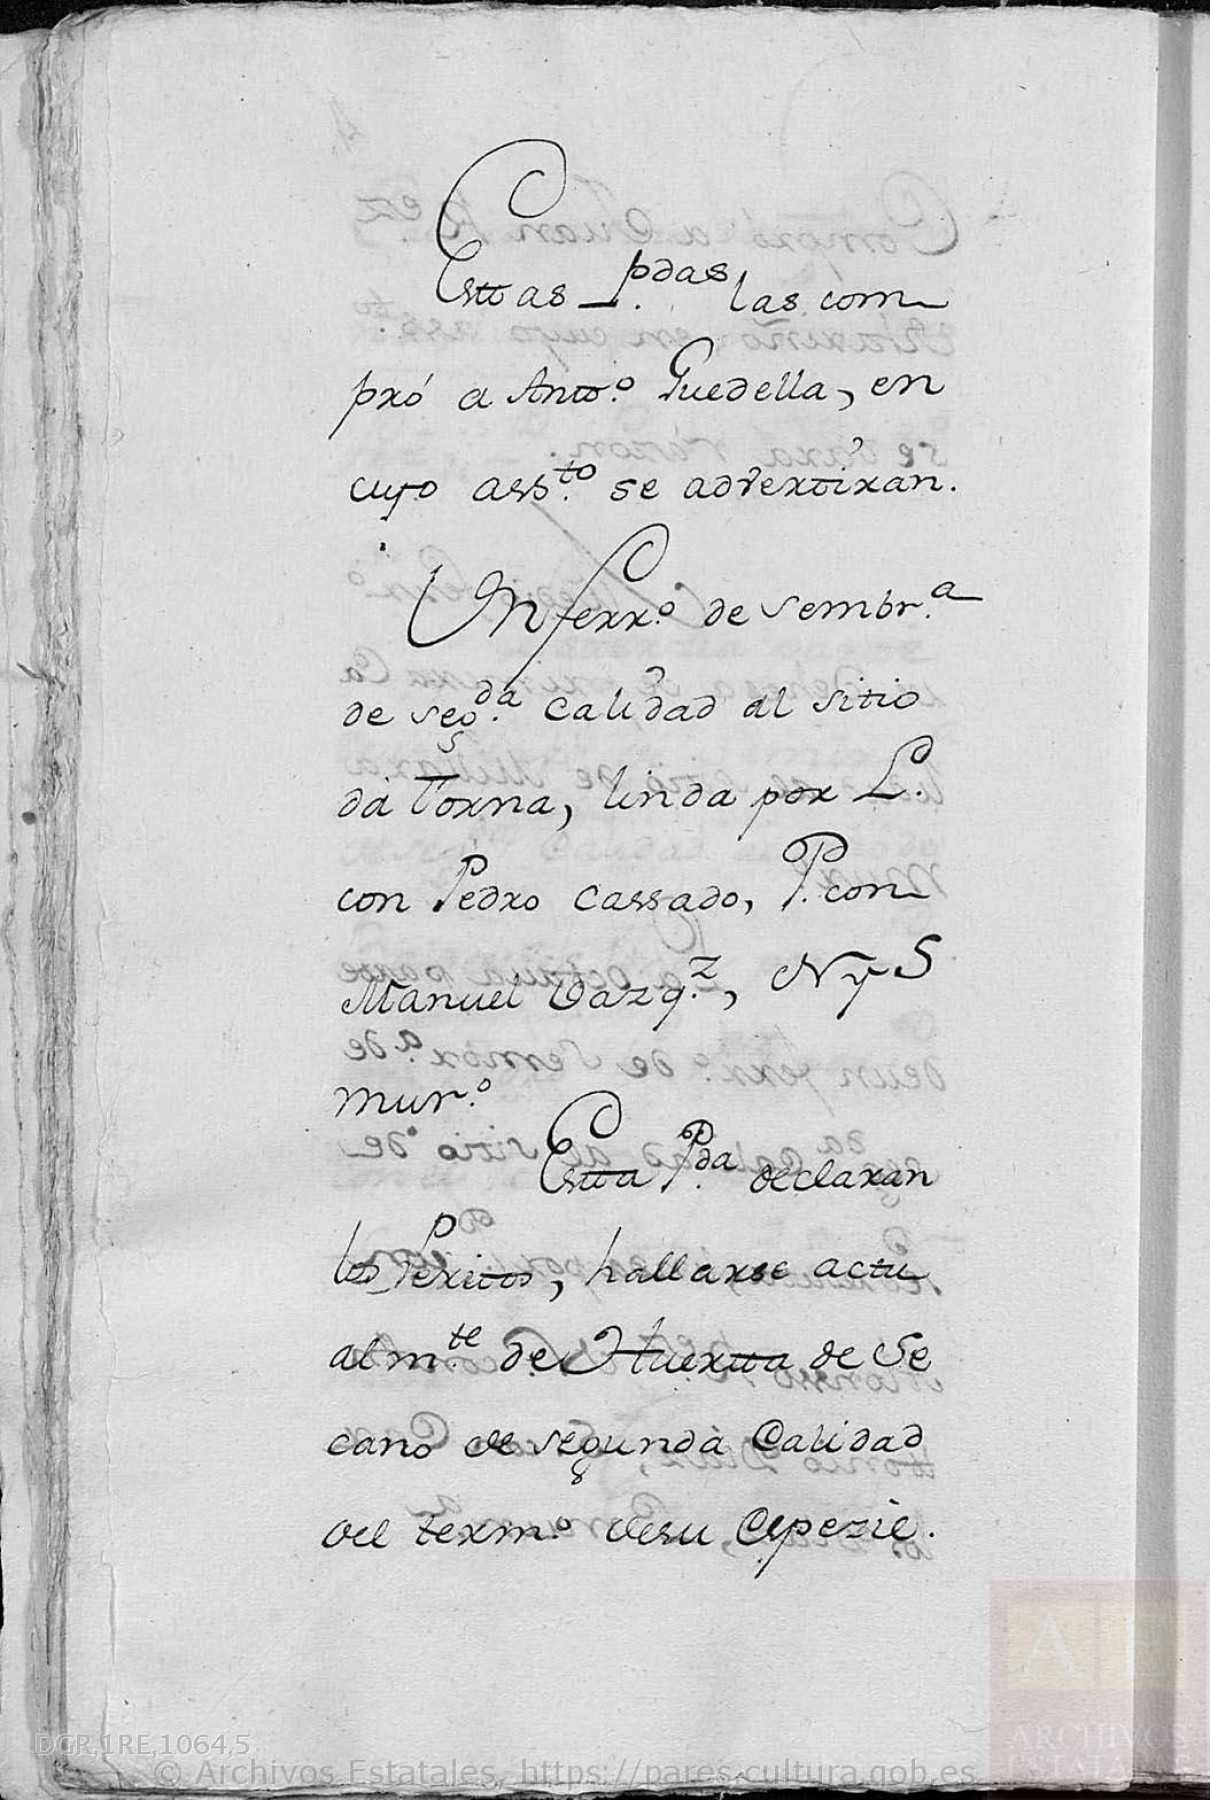 Esttas P.das las com
pró a Antt.º Guedella, en
cuyo ass.to se advertirán.
Un ferr.º de sembr.a
de seg.da Calidad al sitio
da Torna, linda por L.
con Pedro Cassado, P. con
Manuel Vazq.z, N y S
mur.º
Estta P.da declaran
los Peritos, hallarse actu
alm.te de Huertta de Se
cano de segunda Calidad
del term.º desu Espezie.
DGR,1RE,1064,5
© Archivos Estatales, https://pares.cultura.gob.es
AE
ARCHIVOS
ESTATALES